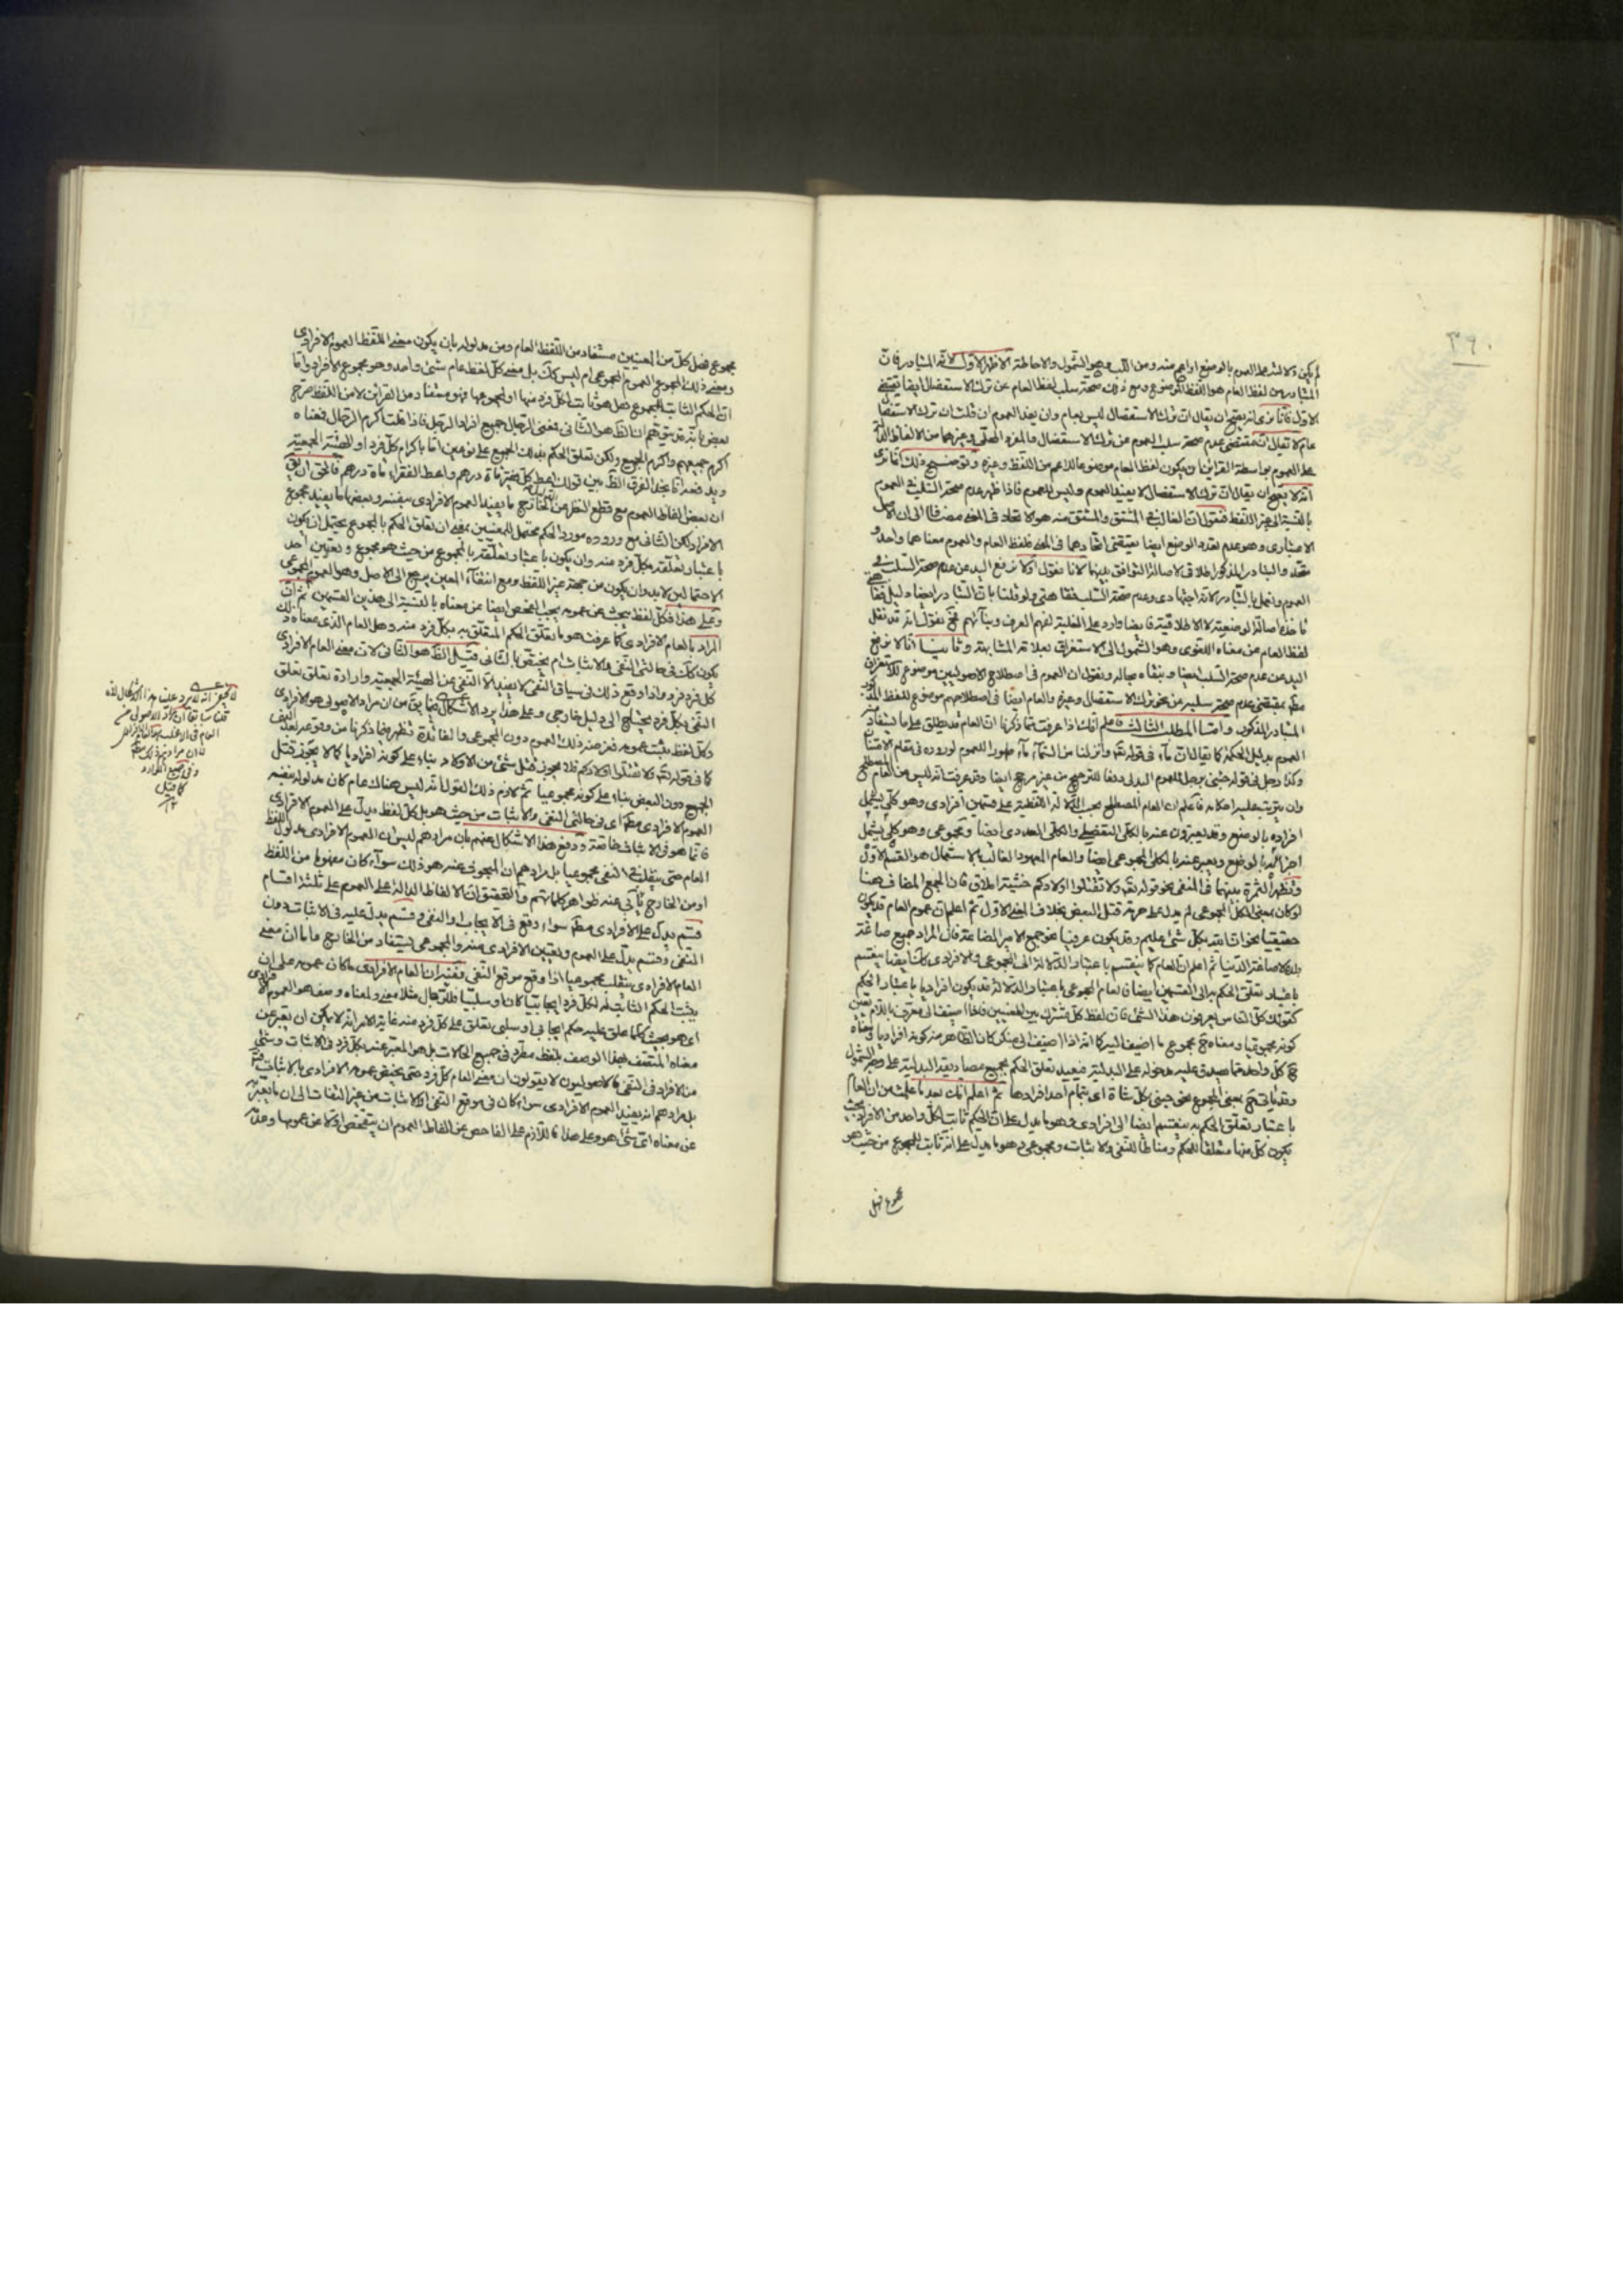 ٣٩٠
لم يكن دلالته على العموم بالوضع او اعم منه ومن اللب وهو الشمول والاحاطة الاظهر الاول لانه المتبادر فان
المتبادر من لفظ العام هو اللفظ الموضوع ومع ذلك صحة سلب لفظ العام عن ترك الاستفصال ايضا يقتضى
الاول فانا نرى انه يصح ان يقال ان ترك الاستفصال ليس بعام وان يفيد العموم ان قلت ان ترك الاستفصال
عام لا يقال ان مقتضى عدم صحة سلب العموم عن ترك الاستفصال والمفرد المحلى وغيرهما من الالفاظ الدالة
على العموم بواسطة القرائن ان يكون لفظ العام موضوعا للاعم من اللفظ وغيره وتوضيح ذلك انا نرى
انه لا يصح ان يقال ان ترك الاستفصال لا يفيد العموم وليس للعموم فاذا ظهر عدم صحة السلب فى العموم
بالنسبة الى غير اللفظ فنقول ان الغالب فى المشتق والمشتق منه هو الاتحاد فى المعنى مضافا الى ان الاصل
الاعتبارى وهو عدم تعدد الوضع ايضا يقتضى اتحادهما فى المعنى فلفظ العام والعموم معناهما واحد و
العموم ونعمل بالتبادر لانه اجتهادى وعدم صحة السلب فقاهتى ولو قلنا بان التبادر ايضا دليل فقاهتى
لفظ العام عن معناه اللغوى وهو الشمول الى الاستغراق بعلاقة المشابهة وثانيا انا لا نرفع
اليد عن عدم صحة السلب ايضا وبنقاه بحاله ونقول ان العموم فى اصطلاح الاصوليين موضوع للاستغراق
مطم بمقتضى عدم صحة سلبه عن نحو ترك الاستفصال وغيره والعام ايضا فى اصطلاحهم موضوع للفظ
المتبادر المذكور واما المطلب الثالث فاعلم انك اذا عرفت مما ذكرنا ان العام قد يطلق على ما يستفاد منه
العموم بدليل الحكمة كما يقال ان ماء فى قوله تعه وانزلنا من السماء ماء طهورا للعموم لوروده فى مقام الامتنان
وكذا رجل فى قوله جئنى برجل للعموم البدلى دفعا للترجيح من غير مرجح ايضا وقد عرفت انه ليس من العام المصطلح
وان يترتب عليه احكامه فاعلم ان العام المصطلح بحسب الدلالة اللفظية على قسمين افرادى وهو كلى يشمل
افراده بالوضع وقد يعبرون عنه بالكلى التفصيلى والكلى العددى ايضا ومجموعى وهو كلى يشمل
اجزائه بالوضع ويعبر عنه بالكل المجموعى ايضا والعام المعهود الغالب بالاستعمال هو القسم الاول
وتظهر الثمرة بينهما فى المنفى نحو قوله تعه ولا تقتلوا اولادكم خشية املاق فان الجمع المضاف هنا
لو كان بمعنى الكل المجموعى لم يدل على حرمة قتل البعض بخلاف المعنى الاول ثم اعلم ان عموم العام قد يكون
حقيقيا نحو ان الله بكل شئ عليم وقد يكون عرفيا نحو جمع الامير الصاغة فان المراد جميع صاغة
بلده لا صاغة الدنيا ثم اعلم ان العام كما ينقسم باعتبار الدلالة الى المجموعى والافرادى كذا ايضا ينقسم
باعتبار تعلق الحكم به الى القسمين ايضا فالعام المجموعى باعتبار الدلالة قد يكون افراديا باعتبار الحكم
كقولك كل الناس يعرفون هذا الشئ فان لفظ كل مشترك بين المعنيين فاذا اضيف الى معرف باللام يتعين
كونه مجموعيا ومعناه ح مجموع ما اضيف اليه كما انه اذا اضيف الى منكر كان الظاهر منه كونه افراديا ومعناه
ح كل واحد مما يصدق عليه مدخوله على البدلية فيفيد تعلق الحكم بجميع مصاديقه البدلية على وجه الشمول
وقد يأتى ح بمعنى المجموع نحو جئنى بكل شاة اى بتمام آحاد افرادها ثم اعلم انك بعد ما علمت من ان العام
باعتبار تعلق الحكم به ينقسم ايضا الى افرادى وهو ما يدل على ان الحكم ثابت لكل واحد من الافراد بحيث
يكون كل منها متعلقا للحكم ومناطا للنفى والاثبات ومجموعى وهو ما يدل على انه ثابت للمجموع من حيث هو
مجموع فهل
مجموع فهل كل من المعنيين مستفاد من اللفظ العام ومن مدلوله بان يكون معنى اللفظ العموم الافرادى
ومعنى ذلك المجموع العموم المجموعى ام ليس كك بل معنى كل لفظ عام شئ واحد وهو مجموع الافراد واما
ان الحكم الثابت للمجموع هل هو ثابت لكل فرد منها او لمجموعها فهو مستفاد من القرائن لا من اللفظ صرح
بعض بانه قد يتوهم ان الظ هو الثانى فمعنى الرجال جميع افراد الرجل فاذا قلت اكرم الرجال فمعناه
اكرم جميعهم واكرم الجميع ولكن تعلق الحكم بذلك الجميع على نوعين اما باكرام كل فرد او للهيئة الجمعية
ويدفعه انا نجد الفرق الظ بين قولك اعط كل فقير مأة درهم واعط الفقراء مأة درهم فالحق ان يق
ان بعض الفاظ العموم مع قطع النظر عن الخارج ما يفيد العموم الافرادى بنفسه وبعضها ما يفيد مجموع
الافراد لكن الثانى مع وروده مورد الحكم محتمل للمعنيين بمعنى ان تعلق الحكم بالمجموع يحتمل ان يكون
باعتبار تعلقه بكل فرد منه وان يكون باعتبار تعلقه بالمجموع من حيث هو مجموع وتعيين احد
الاحتمالين لابد وان يكون من جهة غير اللفظ ومع انتفاء المعين يرجع الى الاصل وهو العموم المجموعى
وعلى هذا فكل لفظ يبحث عن عمومه يجب الفحص ايضا عن معناه بالنسبة الى هذين القسمين ثم ان
المراد بالعام الافرادى كما عرفت هو ما يتعلق الحكم المتعلق به بكل فرد منه وهل العام الذى معناه ذلك
يكون كك فى حالتى النفى والاثبات ام يختص بالثانى قيل الظ هو الثانى لان معنى العام الافرادى
كل فرد فرد واذا وقع ذلك فى سياق النفى لا يفيد الا النفى عن الهيئة الجمعية وارادة تعلق
النفى بكل فرد يحتاج الى دليل خارجى وعلى هذا يرد الاشكال فيما يق من ان مراد الاصولى هو الافرادى
وكل لفظ يثبت عمومه فغرضه ذلك العموم دون المجموعى والفائدة تظهر فيما ذكرنا من وقوعه بعد النفى
كما فى قوله تعه ولا تقتلوا اولادكم فلا يجوز قتل شئ من الاولاد بناء على كونه افراديا كما لا يجوز قتل
الجميع دون البعض بناء على كونه مجموعيا ثم لازم ذلك القول انه ليس هناك عام كان مدلوله بنفسه
العموم الافرادى مطم اى فى حالتى النفى والاثبات من حيث هو بل كل لفظ يدل على العموم الافرادى
فانما هو فى الاثبات خاصة ودفع هذا الاشكال عنهم بان مرادهم ليس ان العموم الافرادى مدلول اللفظ
العام حتى ينقلب فى النفى مجموعيا بل مرادهم ان المبحوث عنه هو ذلك سواء كان مفهوما من اللفظ
او من الخارج يأبى عنه ظواهر كلماتهم والتحقيق ان الالفاظ الدالة على العموم على ثلثة اقسام
قسم يدل على الافرادى مطم سواء وقع فى الايجاب او النفى وقسم يدل عليه فى الاثبات دون
النفى وقسم يدل على العموم وتعيين الافرادى منه والمجموعى يستفاد من الخارج واما ان معنى
العام الافرادى ينقلب مجموعيا اذا وقع موقع النفى ففيه ان العام الافرادى ما كان عمومه على ان
يثبت الحكم الثابت له لكل فرد ايجابيا كان او سلبيا فللرجال مثلا معنى ولمعناه وصف هو العموم الافرادى
اى هو بحيث كلما علق عليه حكم ايجابى او سلبى تعلق على كل فرد منه غاية الامر انه لا يمكن ان يعبر عن
معناه المتصف بهذا الوصف بلفظ مطرد فى جميع الحالات بل هو المعبر عنه بكل فرد فى الاثبات وشئ
من الافراد فى النفى فالاصوليون لا يقولون ان معنى العام كل فرد حتى يختص عمومه الافرادى بالاثبات
بل مرادهم انه يفيد العموم الافرادى سواء كان فى موقع النفى او الاثبات من غير التفات الى ان ما يعبر به
عن معناه اى شئ هو وعلى هذا فاللازم على الفاحص عن الفاظ العموم ان يتفحص اولا عن عمومها وعدمه
لا يخفى انه لا يرد علينا هذا الاشكال لانه